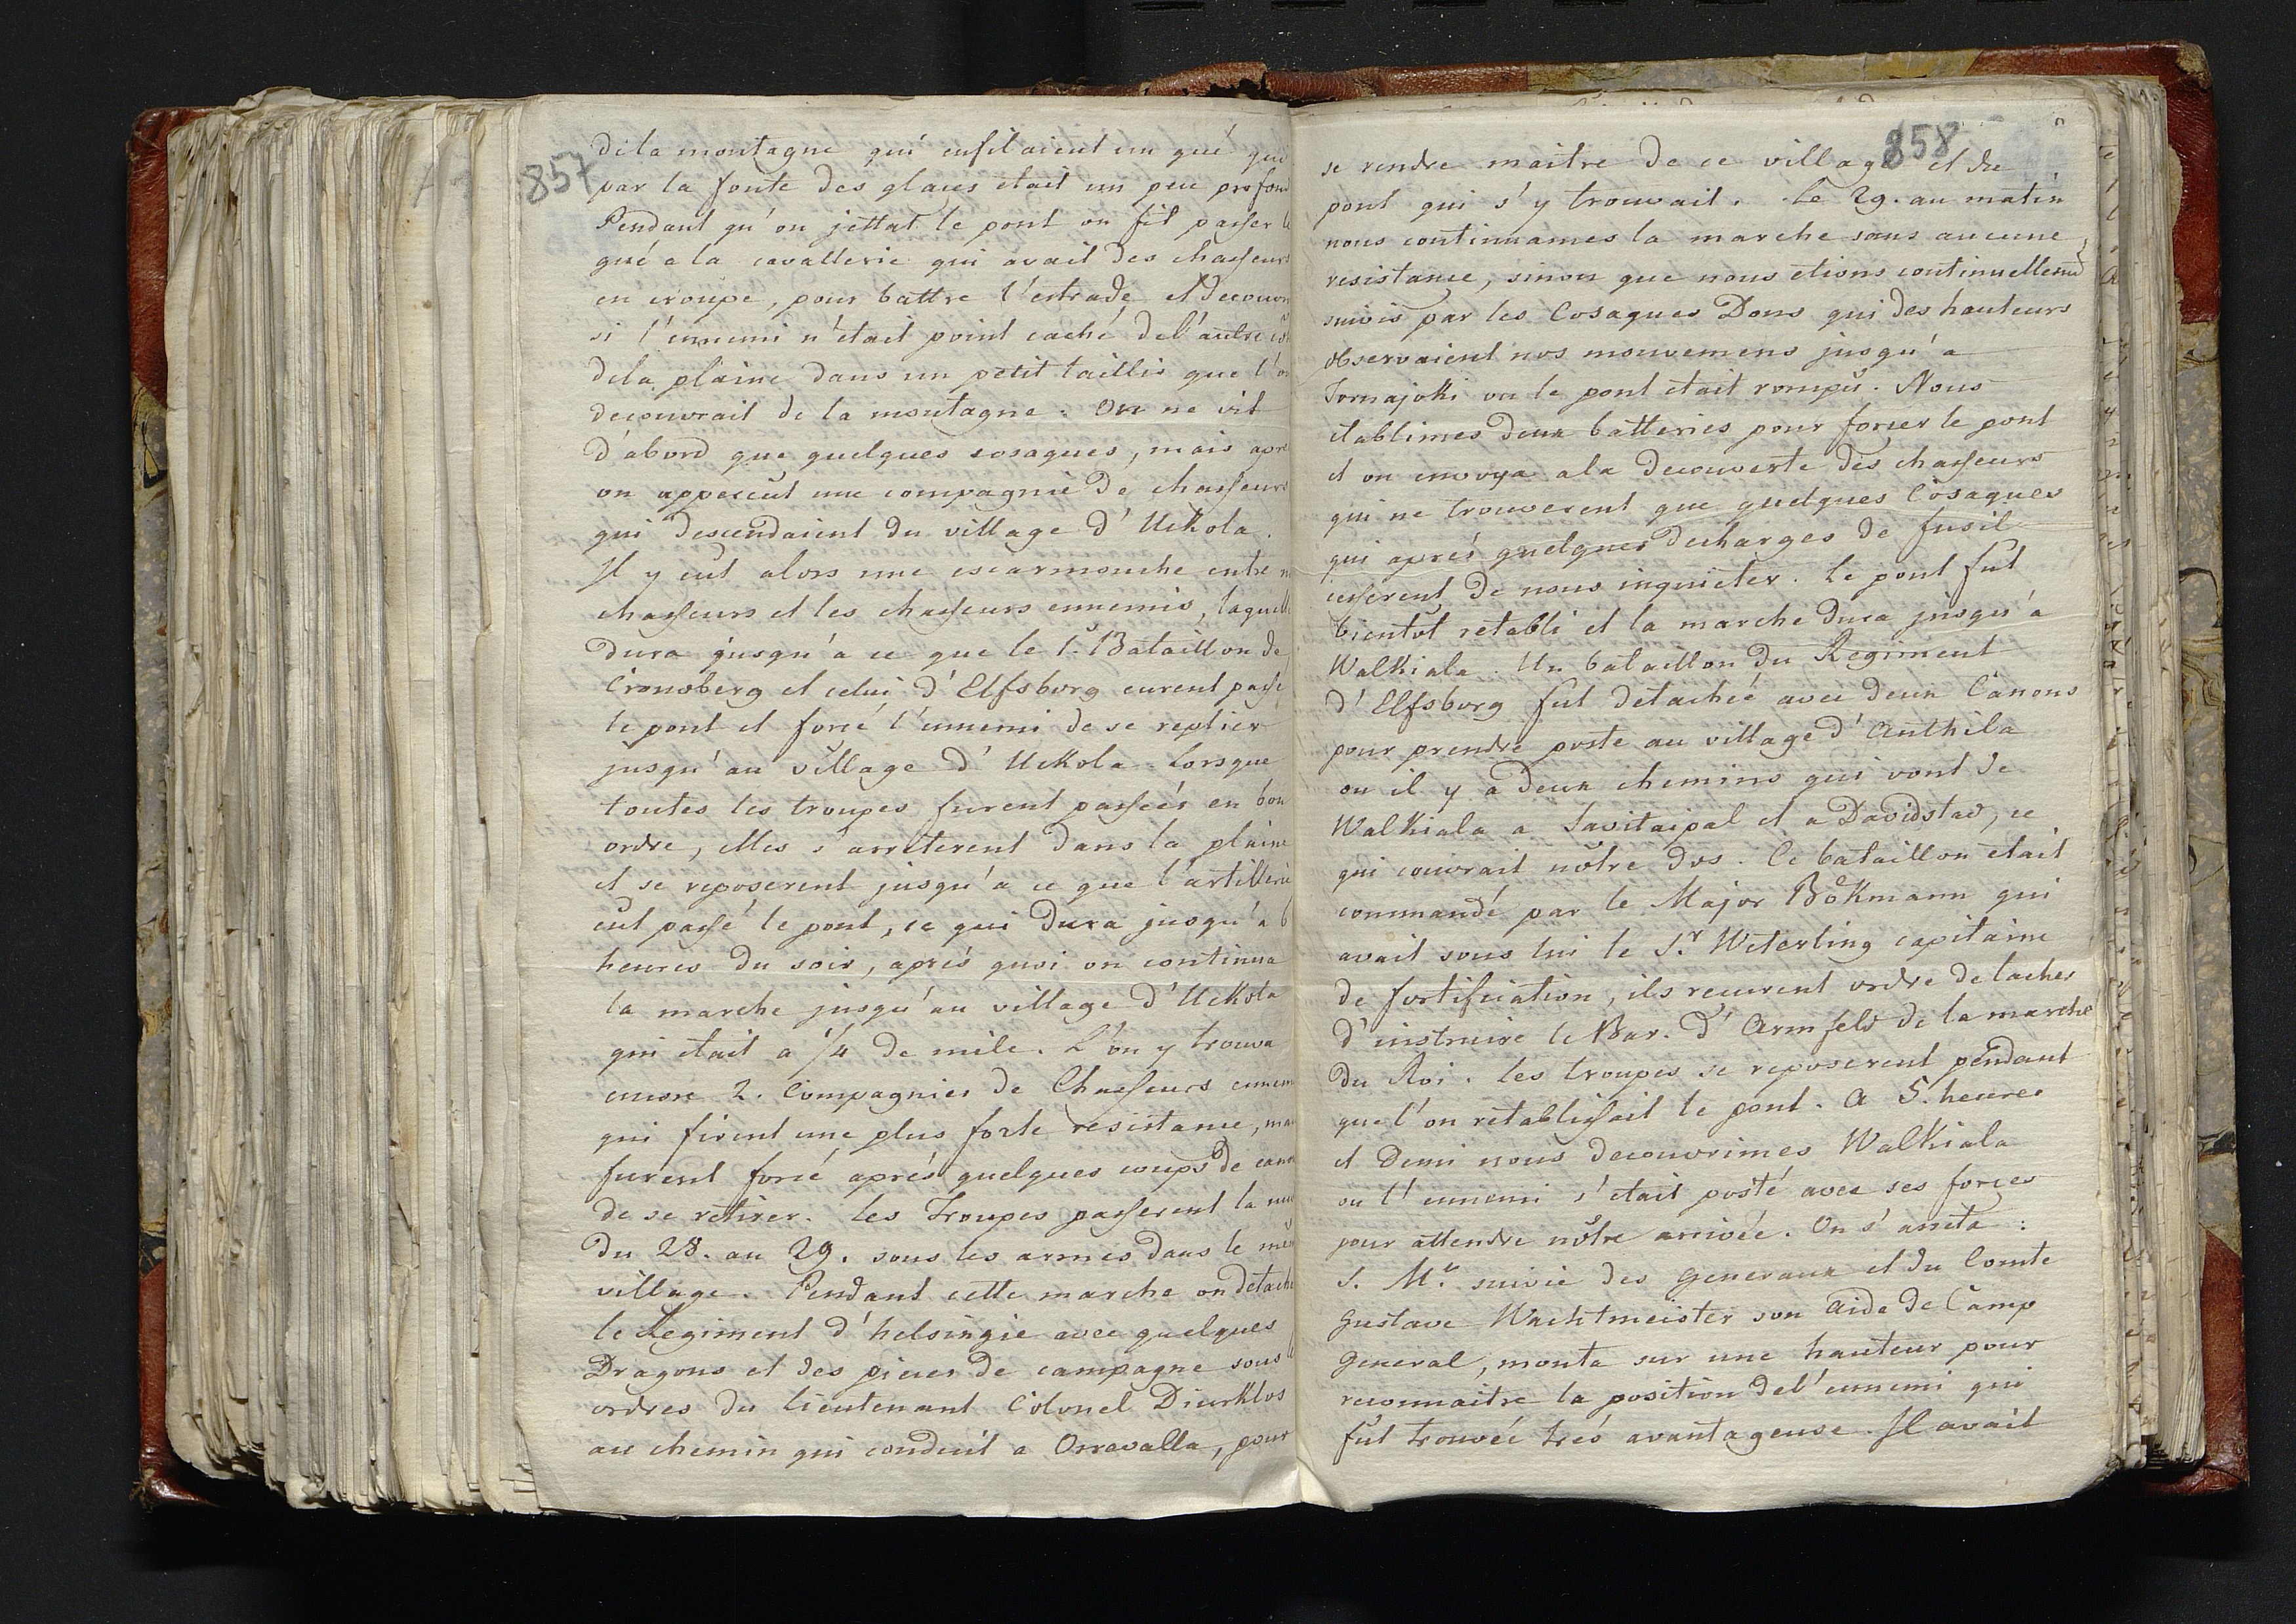 857
dela montagne qui enfilaient un gué qui
par la fonte des glaces etait un peu profond
Pendant qu'on jettat le pont on fit passer le
gué a la cavallerie qui avait des chasseurs
en croupe, pour battre l'estrade et decouvr
si l'ennemi n'était point caché del'autre cot
dela plaine dans un petit taillis que l'on
decouvrait de la montagne. On ne vit
d'abord que quelques cosaques, mais apre
on apperçut une compagnie de chasseurs
qui descendaient du village d'Uckola.
Il y eut alors une escarmouche entre n
chasseurs et les chasseurs ennemis, laquelle
dura jusqu'a ce que le 1.r Bataillon de
Cronoberg et celui d'Elfsborg eurent passé
le pont et forcé l'ennemi de se replier
jusqu'au village d'Uckola. Lorsque
toutes les troupes furent passeés en bon
ordre, elles s'arreterent dans la plaine
et se reposerent jusqu'a ce que l'artillerie
eut passé le pont, ce qui dura jusqu'a 6
heures du soir, aprés quoi on continua
la marche jusqu'au village d'Uckola
qui etait a 1/4 de mile. L'on y trouva
encore 2. Compagnies de Chasseurs ennem
qui firent une plus forte resistance, ma
furent forcé aprés quelques coups de cano
de se retirer. les Troupes passerent la nui
du 28. au 29. sous les armes dans le mêm
village. Pendant cette marche on detache
le Regiment d'helsingie avec quelques
Dragons et des pieces de campagne sous l
ordres du lieutenant Colonel Diurklos
au chemin qui conduit a Orravalla, pour
858
se rendre maitre de ce village et du
pont qui s'y trouvait. Le 29. au matin
nous continuames la marche sans aucune
resistance, sinon que nous etions continuellemt
suivis par les Cosaques Dons qui des hauteurs
observaient nos mouvemens jusqu'a
Tornajoki ou le pont etait rompû. Nous
etablimes deux batteries pour forcer le pont
et on envoya ala decouverte des chasseurs
qui ne trouverent que quelques Cosaques
qui aprés quelques decharges de fusil
cesserent de nous inquieter. Le pont fut
bientôt retabli et la marche dura jusqu'a
Walkiala. Un bataillon du Regiment
d'Elfsborg fut detacheé avec deux Canons
pour prendre poste au village d'Anthila
ou il y a deux chemins qui vont de
Walkiala a Savitaipal et a Davidstad, ce
qui couvrait nôtre dos. Ce bataillon était
commandé par le Major Bökmann qui
avait sous lui le S.r Weterling capitaine
de fortification, ils recurent ordre de tacher
d'instruire le Bar. d'Armfeld de la marche
du Roi. les troupes se reposerent pendant
que l'on retablissait le pont. A 5. heures
et demi nous decouvrimes Walkiala
ou l'ennemi s'etait posté avec ses forces
pour attendre nôtre arrivée. On s'arreta:
S. M.té suivie des Generaux et du Comte
Gustave Wachtmeister son Aide de Camp
General, monta sur une hauteur pour
reconnaitre la position del'ennemi qui
fut trouvée trés avantageuse. Il avait